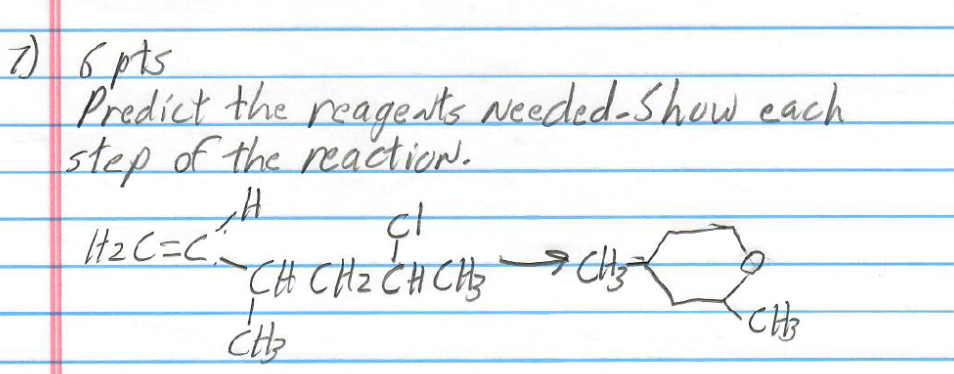 7) 6 pts
Predict the reagents needed-Show each
step of the reaction.
H
Cl
H2C=C
CH CH2 CH CH3 → CH3 O
CH3 CH3